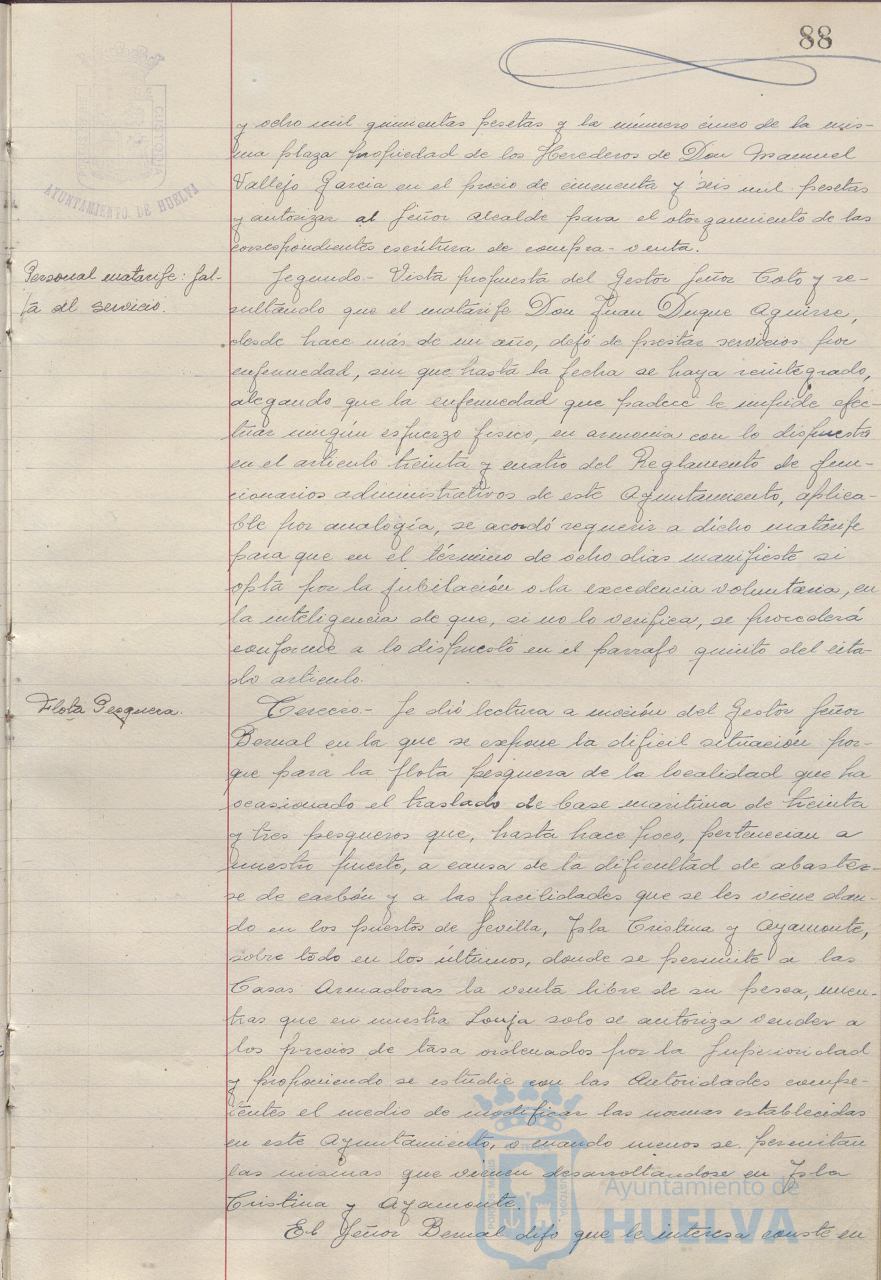 88
y ocho mil quinientas pesetas y la número cinco de la mis-
ma plaza propiedad de los Herederos de Don Manuel
Vallejo Garcia en el precio de cincuenta y seis mil pesetas
y autorizar al Señor Alcalde para el otorgamiento de las
correspondientes escritura de compra-venta.
Personal matarife: fal-
ta al servicio.
Segundo.- Vista propuesta del Gestor Señor Coto y re-
sultando que el matarife Don Juan Duque Aguirre,
desde hace más de un año, dejó de prestar servicios por
enfermedad, sin que hasta la fecha se haya reintegrado,
alegando que la enfermedad que padece le impide efec-
tuar ningún esfuerzo fisico, en armonia con lo dispuesto
en el articulo treinta y cuatro del Reglamento de fun-
cionarios administrativos de este Ayuntamiento, aplica-
ble por analogía, se acordó requerir a dicho matarife
para que en el término de ocho dias manifieste si
opta por la jubilación o la excedencia voluntaria, en
la inteligencia de que, si no lo verifica, se procederá
conforme a lo dispuesto en el parrafo quinto del cita-
do articulo.
Flota Pesquera.
Tercero.- Se dió lectura a moción del Gestor Señor
Bernal en la que se expone la dificil situación por-
que para la flota pesquera de la localidad que ha
ocasionado el traslado de base maritima de treinta
y tres pesqueros que, hasta hace poco, pertenecian a
nuestro puerto, a causa de la dificultad de abastecer-
se de carbón y a las facilidades que se les viene dan-
do en los puertos de Sevilla, Isla Cristina y Ayamonte,
sobre todo en los últimos, donde se permite a las
Casas Armadoras la venta libre de su pesca, mien-
tras que en nuestra Lonja solo se autoriza vender a
los precios de tasa ordenados por la Superioridad
y proponiendo se estudie con las Autoridades compe-
tentes el medio de modificar las normas establecidas
en este Ayuntamiento, o cuando menos se permitan
las mismas que vienen desarrollandose en Isla
Cristina y Ayamonte.
El Señor Bernal dijo que le interesa conste en
AYUNTAMIENTO DE HUELVA
Ayuntamiento de
HUELVA